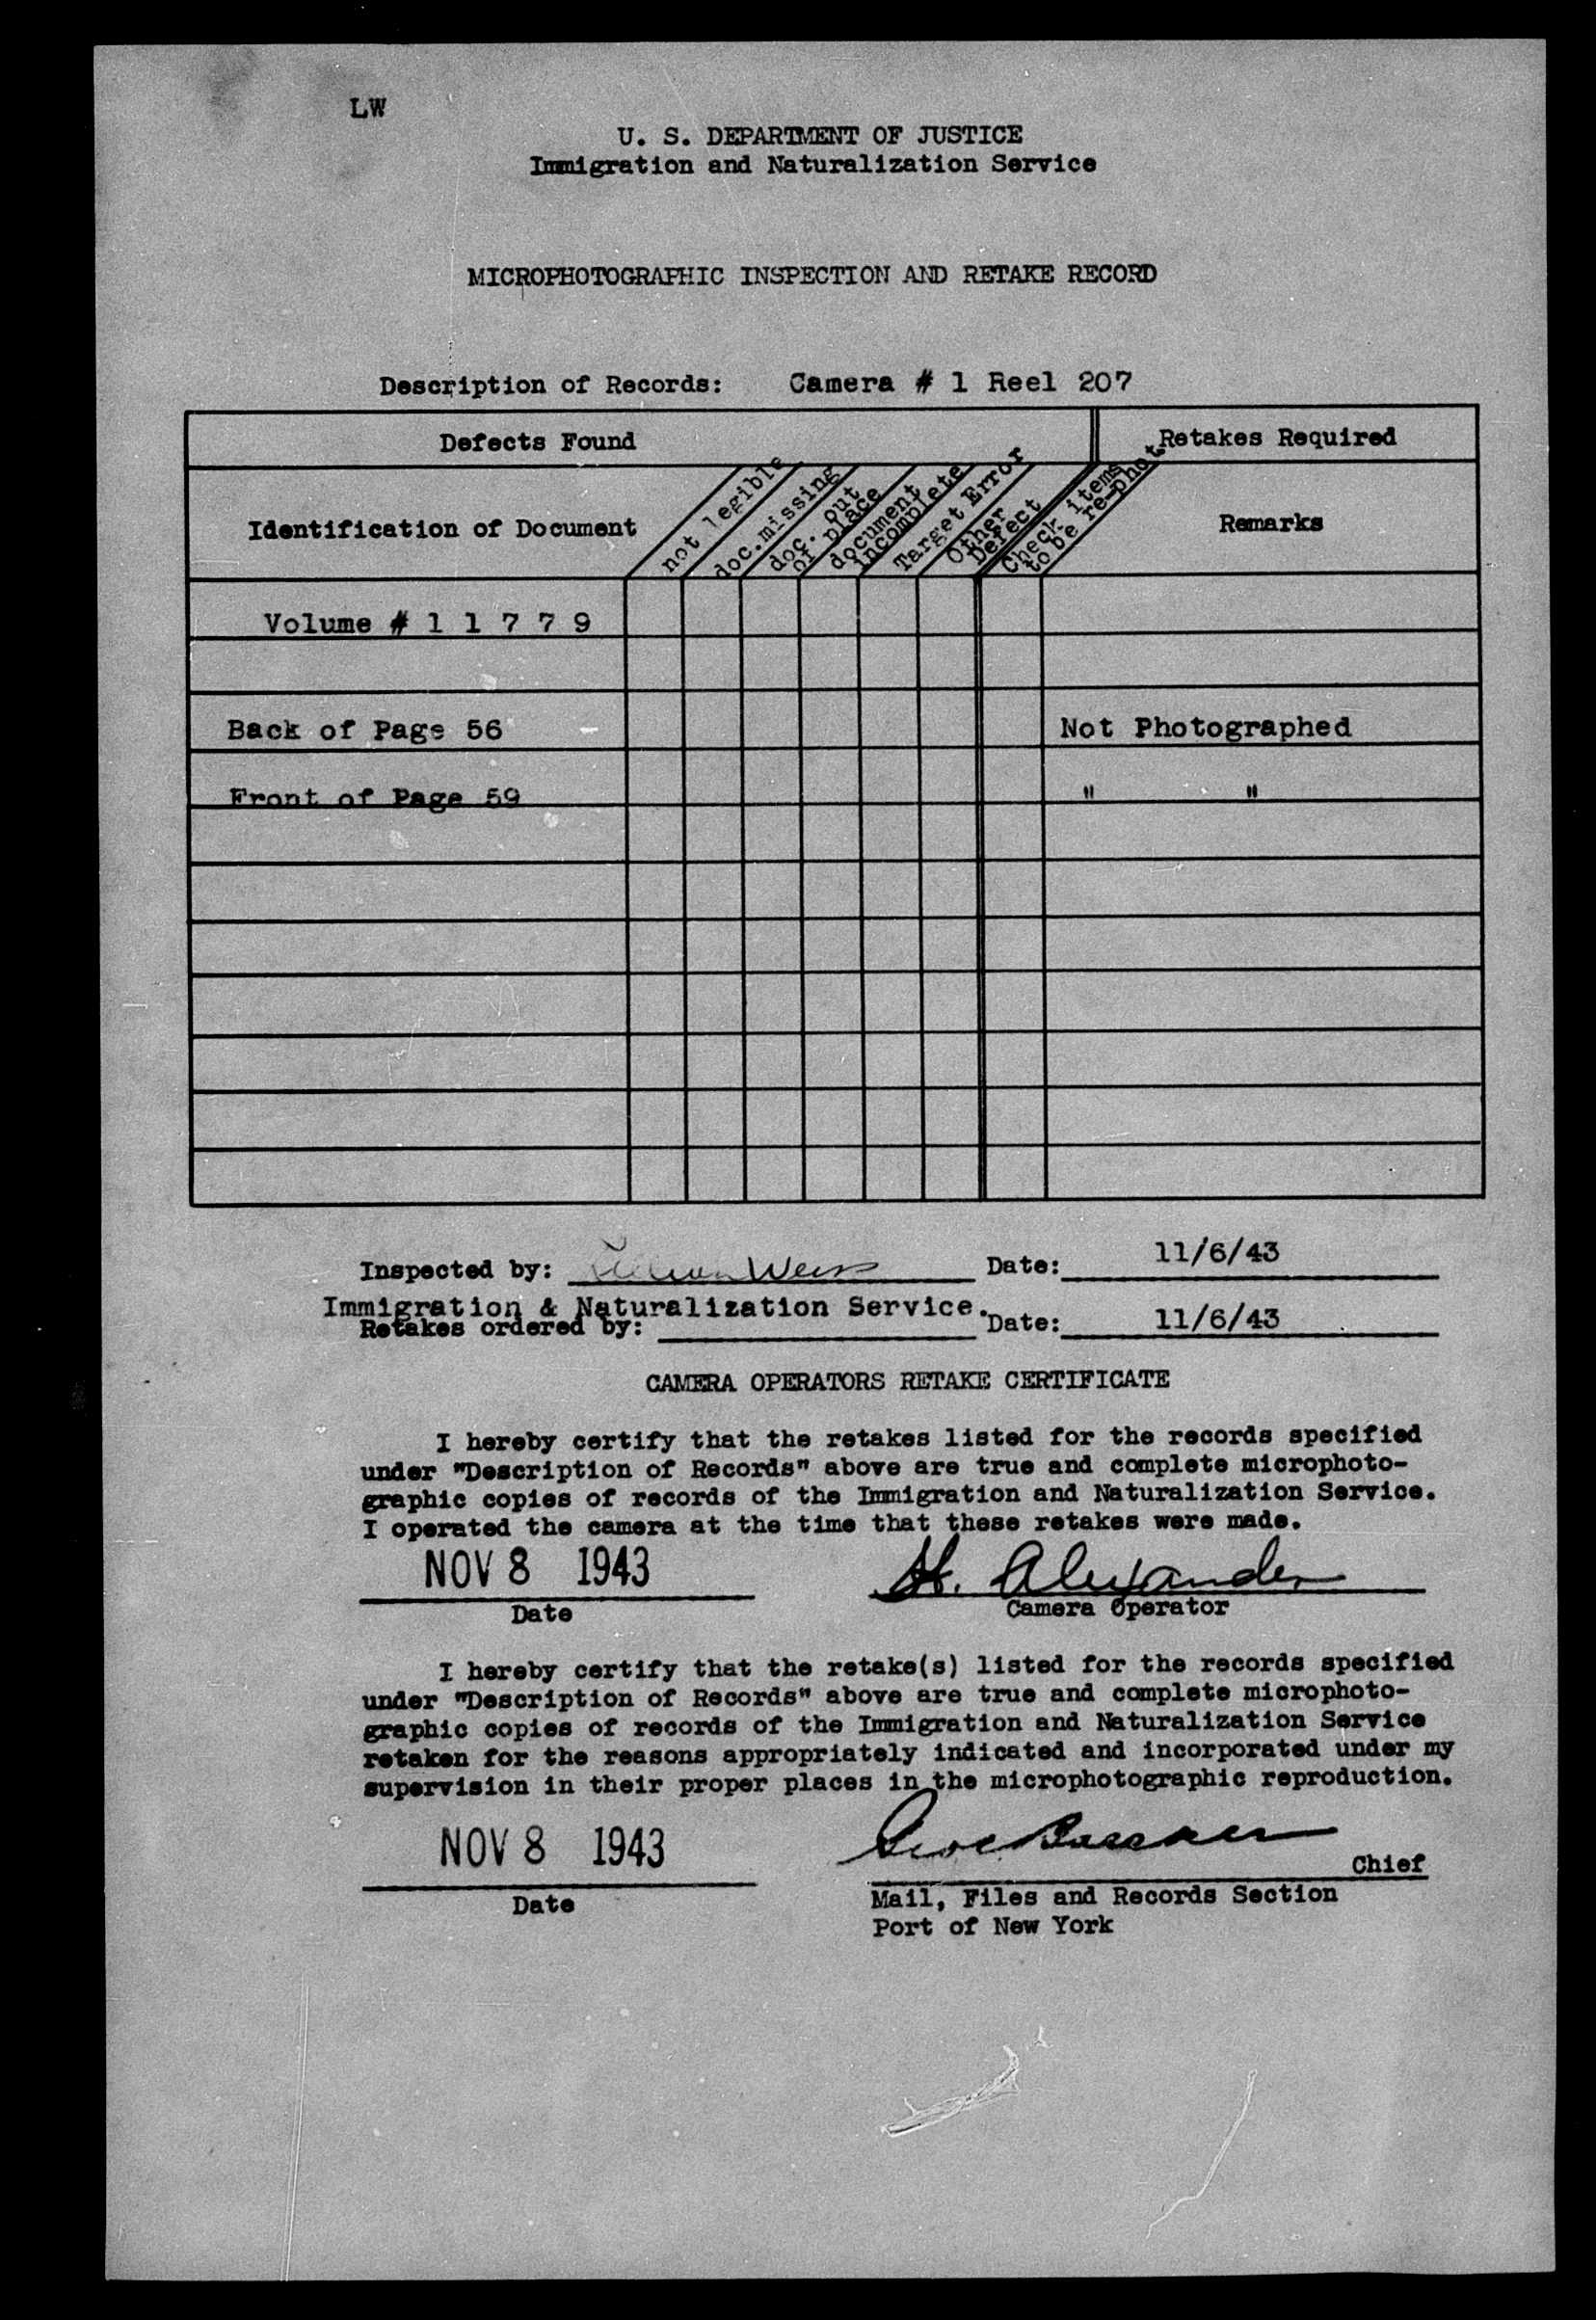 LW
U. S. DEPARTMENT OF JUSTICE
Immigration and Naturalization Service
MICROPHOTOGRAPHIC INSPECTION AND RETAKE RECORD
Description of Records: Camera # 1 Reel 207
Defects Found Retakes Required
Identification of Document
not legible
doc.missing
doc. out
of place
document
incomplete
Target Error
Other
Defect
Check items
to be re-phot.
Remarks
Volume # 1 1 7 7 9
Back of Page 56 Not Photographed
Front of Page 59 " "
Inspected by: Weiss Date: 11/6/43
Immigration & Naturalization Service.
Retakes ordered by: Date: 11/6/43
CAMERA OPERATORS RETAKE CERTIFICATE
I hereby certify that the retakes listed for the records specified
under "Description of Records" above are true and complete microphoto-
graphic copies of records of the Immigration and Naturalization Service.
I operated the camera at the time that these retakes were made.
NOV 8 1943 H. Alexander
Date Camera Operator
I hereby certify that the retake(s) listed for the records specified
under "Description of Records" above are true and complete microphoto-
graphic copies of records of the Immigration and Naturalization Service
retaken for the reasons appropriately indicated and incorporated under my
supervision in their proper places in the microphotographic reproduction.
NOV 8 1943
Chief
Date Mail, Files and Records Section
Port of New York